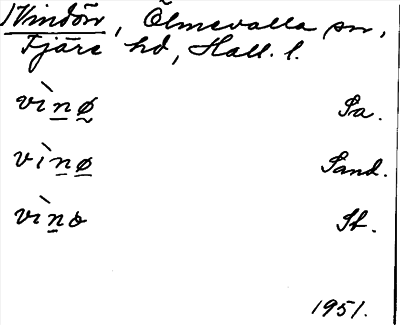 Vindön, Ölmevalla sn,
Fjäre hd, Hall. l.
vìnø Sa.
vìnø Sand.
vìnɵ St.
1951.